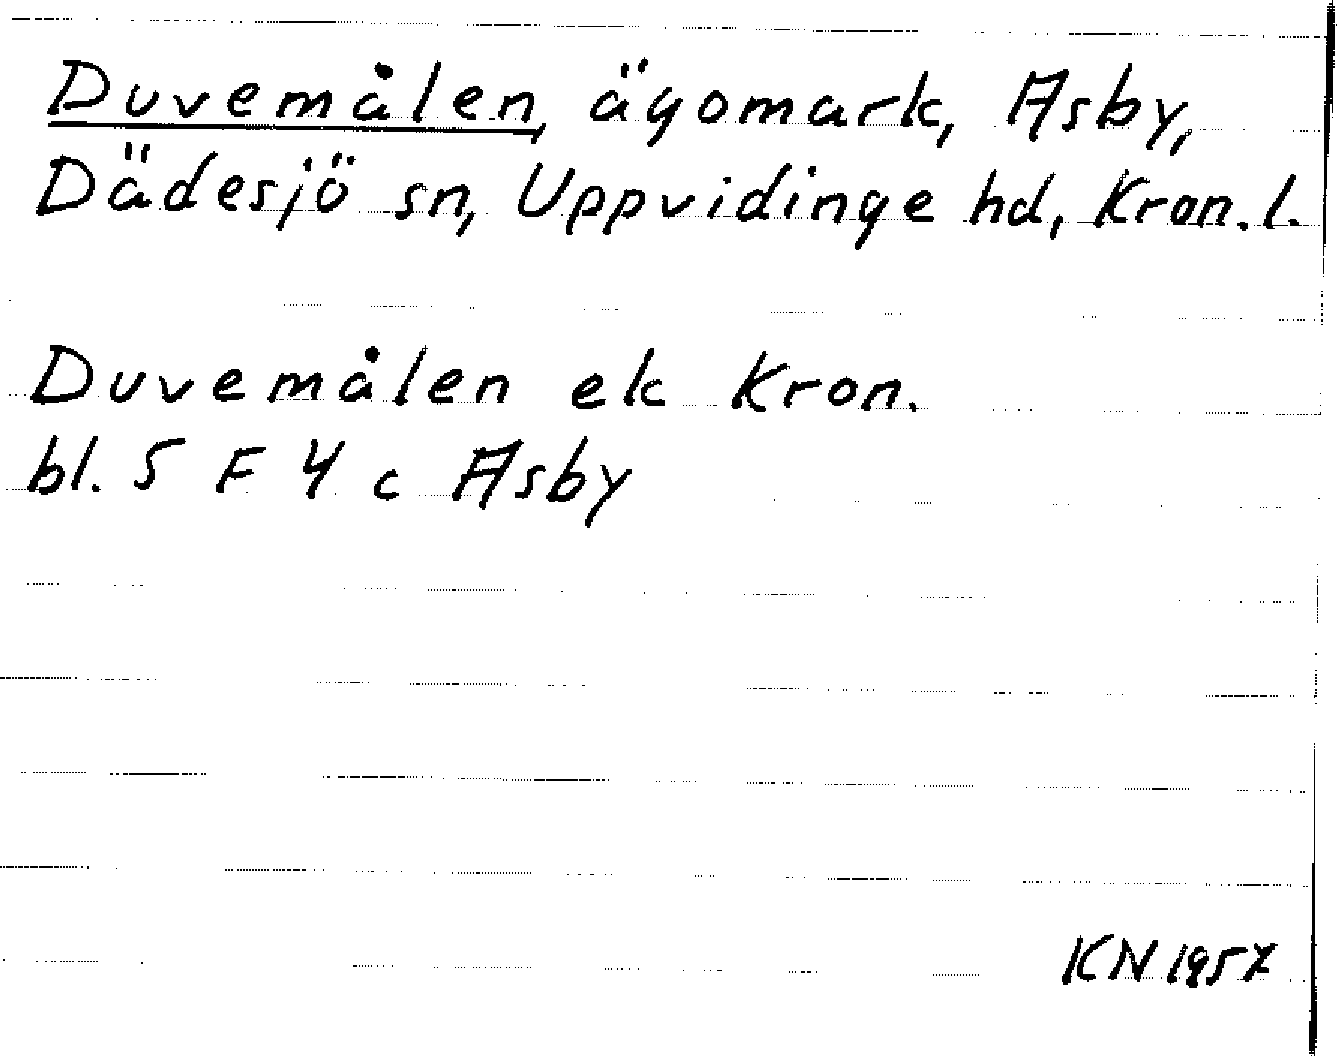 Duvemålen, ägomark, Asby,
Dädesjö sn, Uppvidinge hd, Kron. l.
Duvemålen ek Kron.
bl. 5 F 4 c Asby
KN 1957